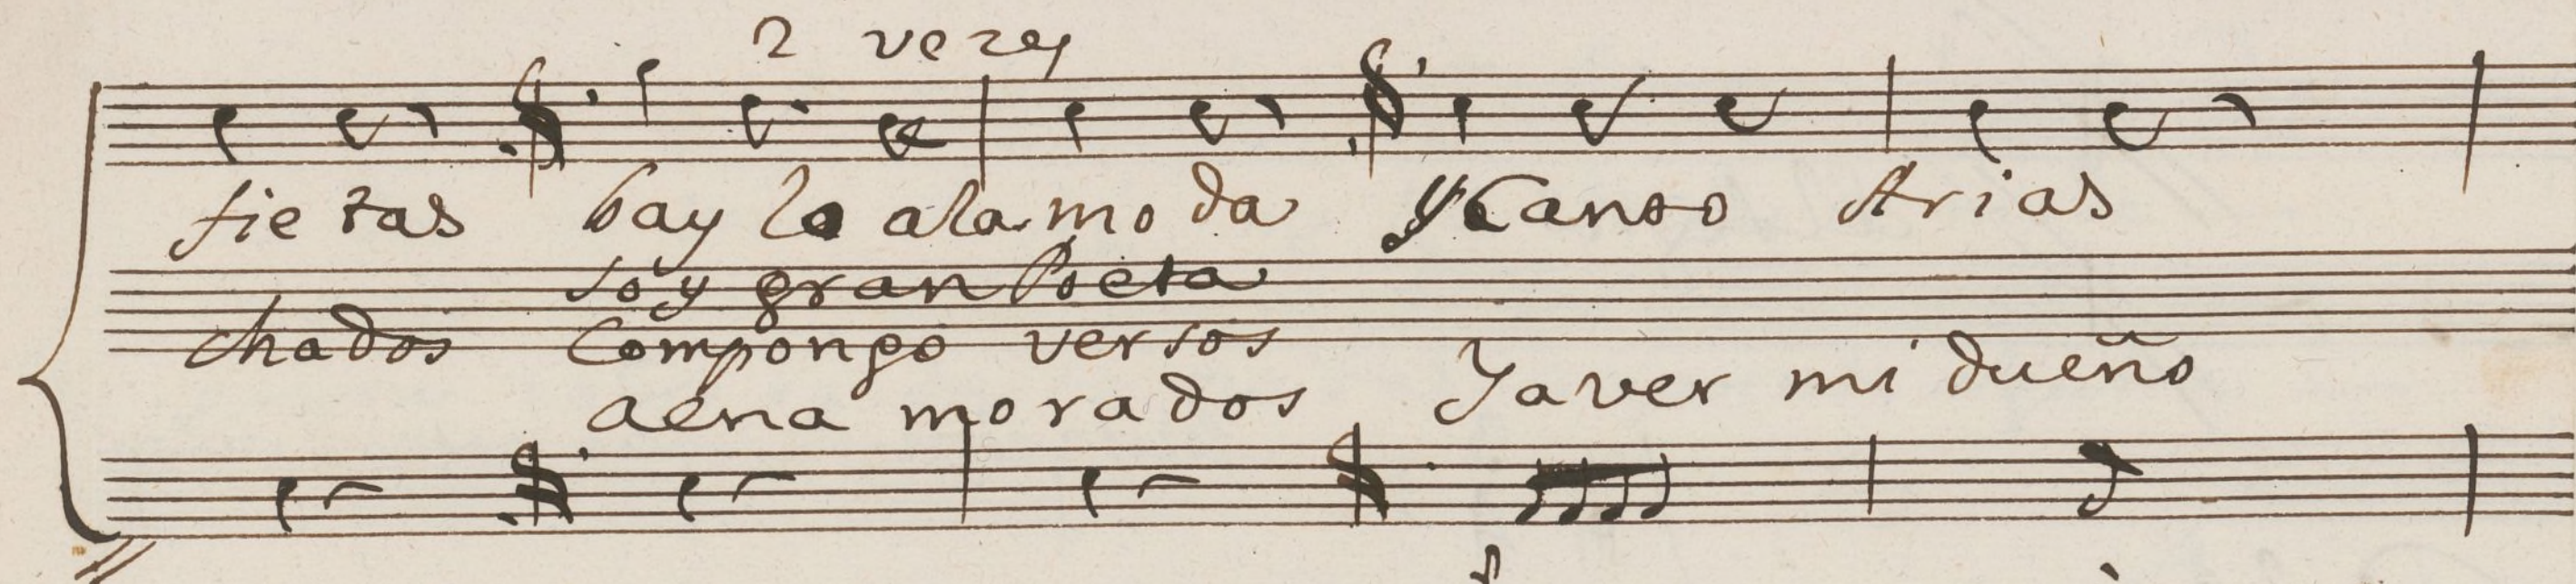 2 vezes
fie tas bay lo ala mo da y Canto Arias
soy gran Poeta
chados Compongo versos
aena morados Yaver mi dueño